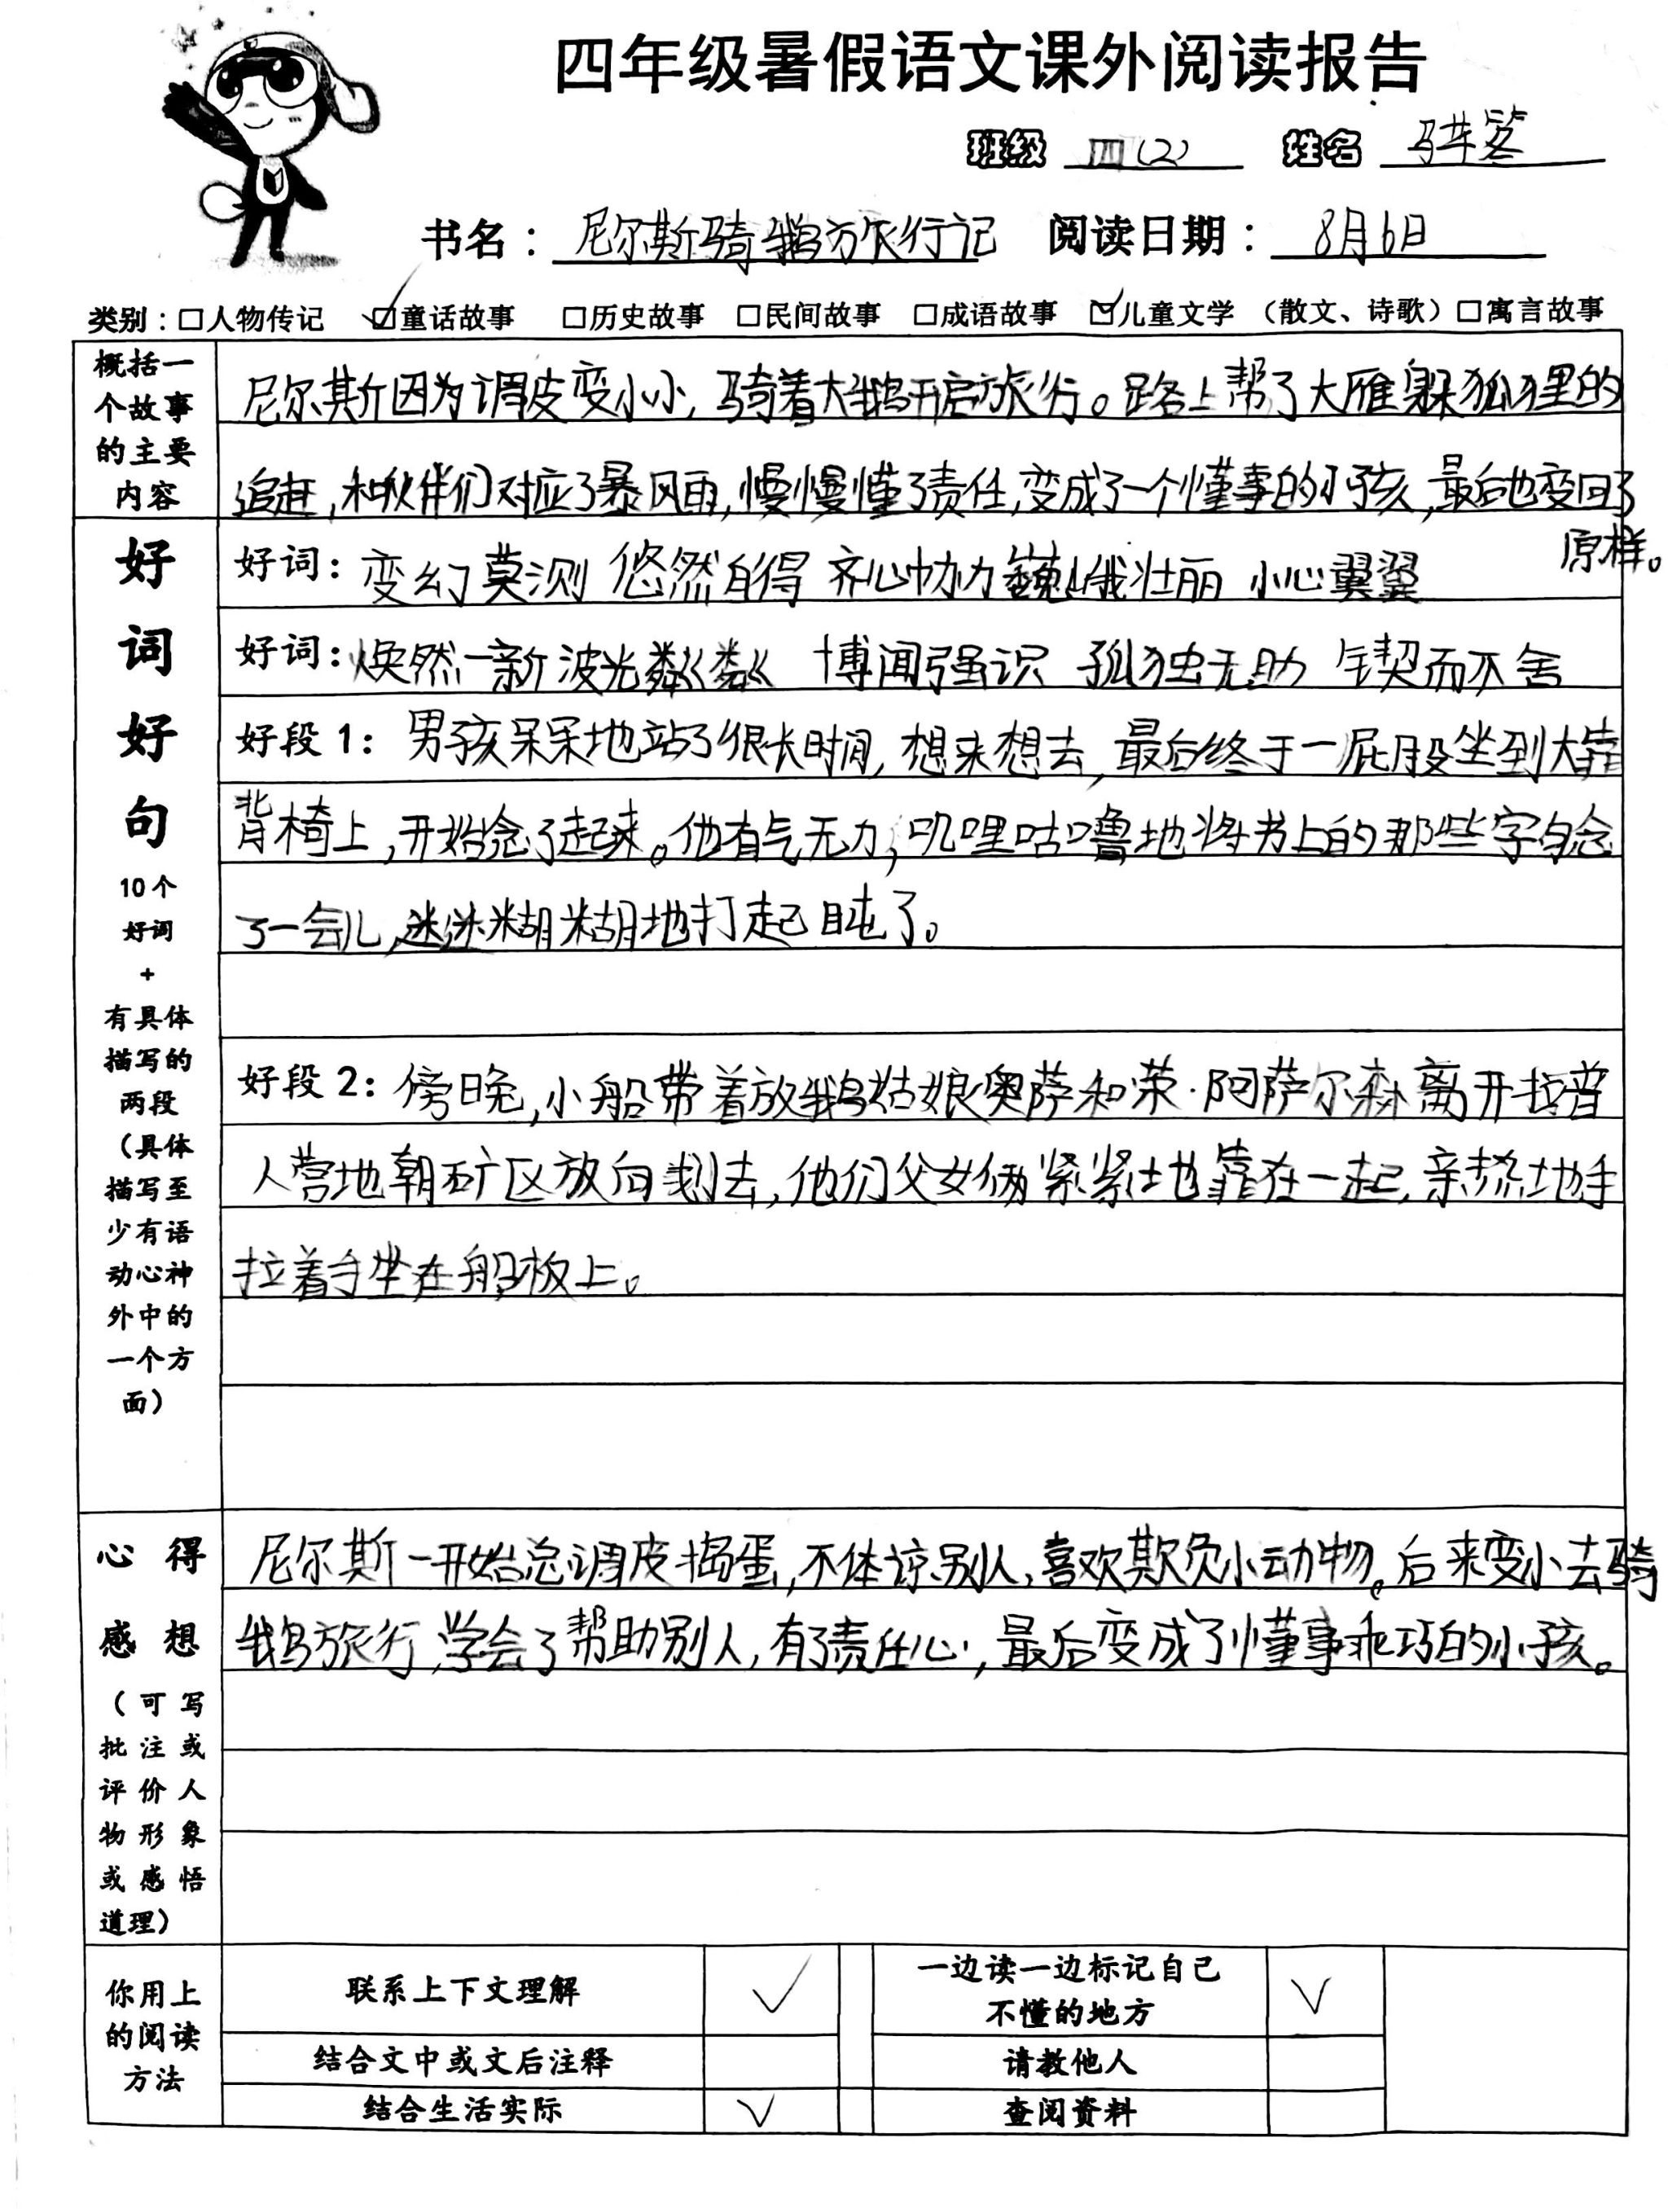 四年级暑假语文课外阅读报告
班级 四(2) 姓名
书名：尼尔斯骑鹅旅行记 阅读日期：8月6日
类别：□人物传记 ☑童话故事 □历史故事 □民间故事 □成语故事 ☑儿童文学（散文、诗歌）□寓言故事
概括一
个故事
的主要
内容
尼尔斯因为调皮变小小，骑着大鹅开启旅行。路上帮了大雁躲狐狸的
追赶，和伙伴们对应了暴风雨，慢慢懂了责任，变成了一个懂事的小孩，最后他变回了
原样。
好
词
好
句
10个
好词
+
有具体
描写的
两段
（具体
描写至
少有语
动心神
外中的
一个方
面）
好词：变幻莫测 悠然自得 齐心协力 巍峨壮丽 小心翼翼
好词：焕然一新 波光粼粼 博闻强识 孤独无助 锲而不舍
好段1：男孩呆呆地站了很长时间，想来想去，最后终于一屁股坐到大靠
背椅上，开始念了起来。他有气无力，叽哩咕噜地将书上的那些字句念
了一会儿，迷迷糊糊地打起盹了。
好段2：傍晚，小船带着放鹅姑娘奥萨和荣·阿萨尔森离开拉普
人营地朝矿区放向划去，他们父女俩紧紧地靠在一起，亲热地手
拉着手坐在船板上。
心得
感想
（可写
批注或
评价人
物形象
或感悟
道理）
尼尔斯一开始总调皮捣蛋，不体谅别人，喜欢欺负小动物。后来变小去骑
鹅旅行，学会了帮助别人，有了责任心，最后变成了懂事乖巧的小孩。
你用上
的阅读
方法
联系上下文理解 ✓ 一边读一边标记自己
不懂的地方 ✓
结合文中或文后注释 请教他人
结合生活实际 ✓ 查阅资料